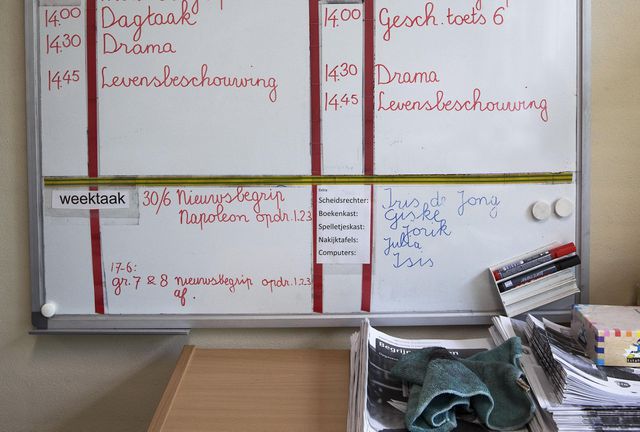 14.00 Dagtaak
14.30 Drama
14.45 Levensbeschouwing
14.00 Gesch. toets 6
14.30 Drama
14.45 Levensbeschouwing
weektaak
30/6 Nieuwsbegrip
Napoleon opdr. 1.2.3
17-6:
gr. 7 & 8 nieuwsbegrip opdr. 1.2.3
af.
Extra
Scheidsrechter:
Boekenkast:
Spelletjeskast:
Nakijktafels:
Computers:
Iris de Jong
Giske
Jorik
Julia
Isis